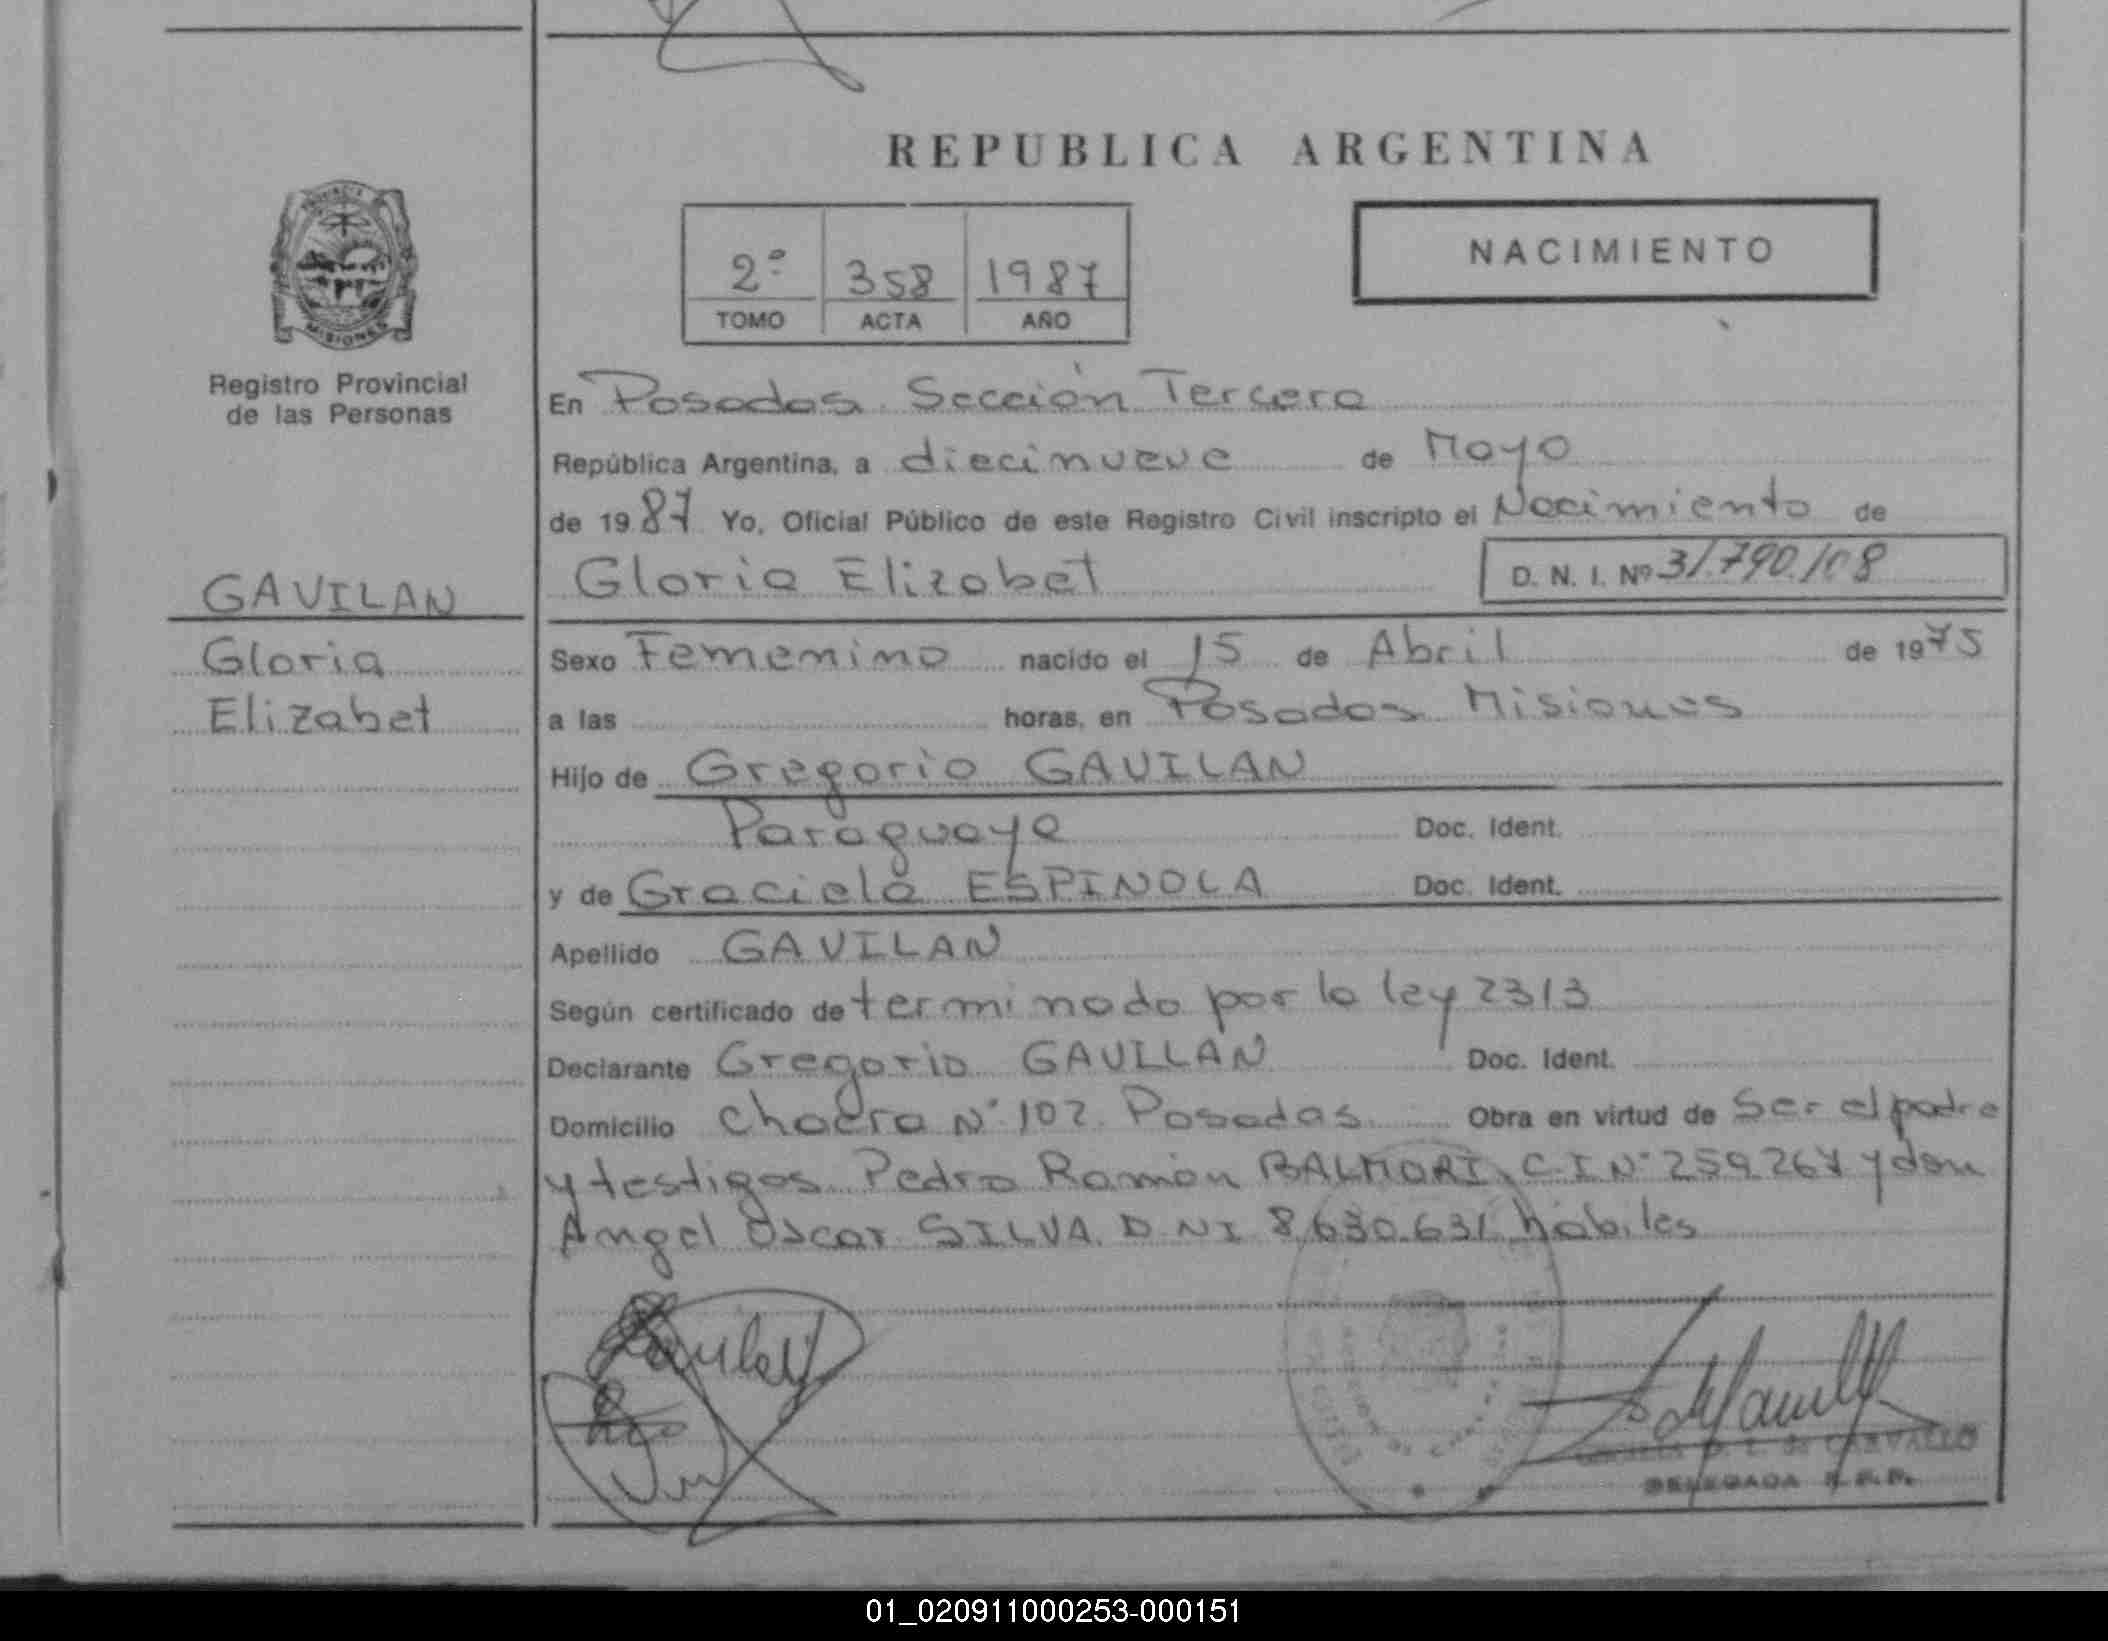 REPUBLICA ARGENTINA
2º 358 1987
TOMO ACTA AÑO
NACIMIENTO
PROVINCIA
MISIONES
Registro Provincial
de las Personas
GAVILAN
Gloria
Elizabet
En Posadas. Sección Tercera
República Argentina, a diecinueve de Mayo
de 1987 Yo, Oficial Público de este Registro Civil inscripto el Nacimiento de
Gloria Elizabet D. N. I. Nº 31.790.108
Sexo Femenino nacido el 15 de Abril de 1975
a las horas, en Posadas Misiones
Hijo de Gregorio GAVILAN
Paraguaya Doc. Ident.
y de Graciela ESPINOLA Doc. Ident.
Apellido GAVILAN
Según certificado de terminado por la ley 2313
Declarante Gregorio GAVILAN Doc. Ident.
Domicilio Chacra Nº 102. Posadas. Obra en virtud de Ser el padre
y testigos Pedro Ramón BALMORI, C.I Nº 259.267 y don
Angel Oscar SILVA. D NI 8.630.631 hábiles
de CARVALLO
DELEGADA R.P.P.
01_020911000253-000151